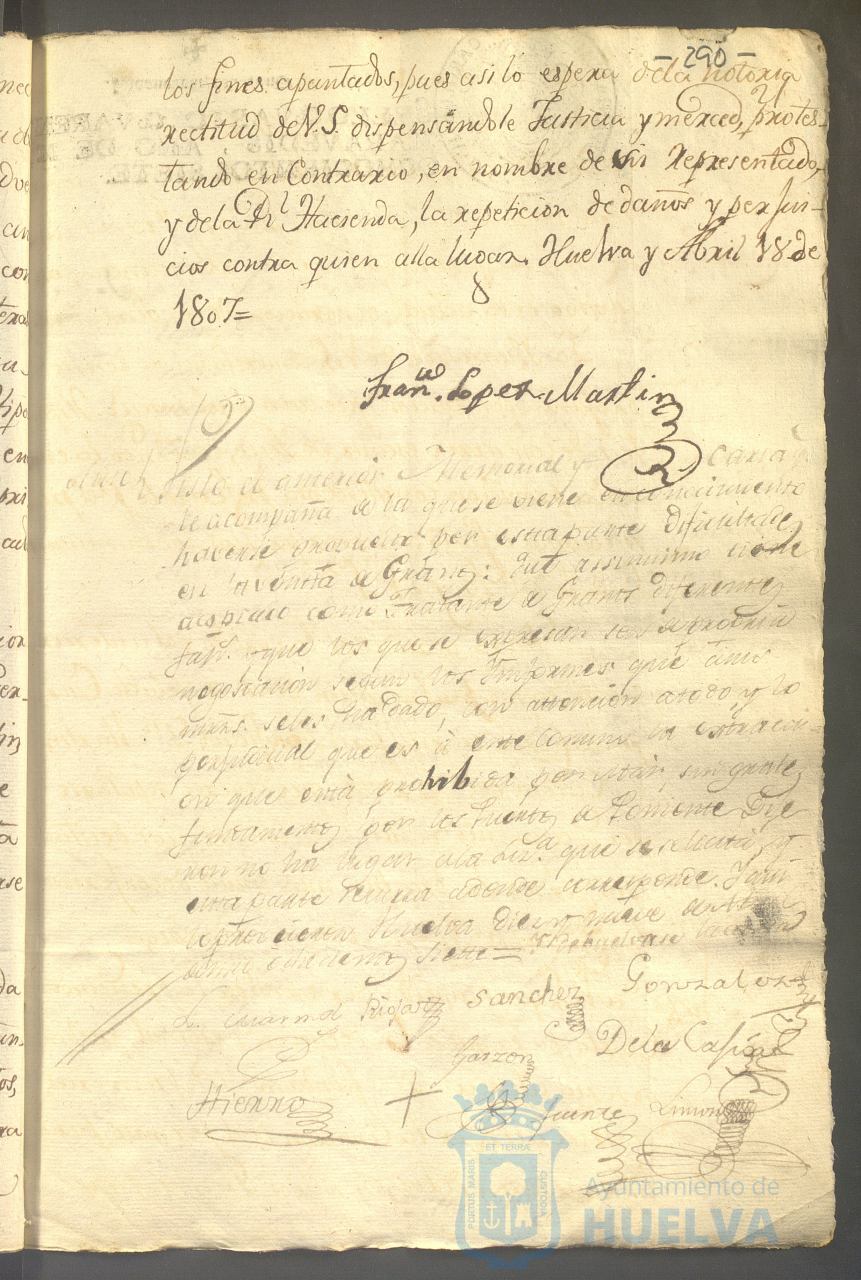 -290-
los fines apuntados, pues asi lo espera de la notoria
rectitud de V.S. dispensandole Justicia y merced, protes-
tando en Contrario, en nombre de mi Representado,
y de la Rl. Hacienda, la repeticion de daños y perjui-
cios contra quien alla lugar. Huelva y Abril 18 de
1807=
Franco. Lopez Martin
Visto el anterior Memorial y Carta q.
le acompaña a la que se viene en conocimiento
haverse producido por esta parte dificultades
en la venta de Granos: Que assimismo tiene
acopiado como Tratante de Granos diferentes
fans. que los que se expresan son de propria
negosiacion segun los Informes que
se les ha dado, con attencion a todo, y lo
perjudicial que es â este Comun la estracci-
on que está prohibida por Mar, sin
fundamento por los Puertos de Poniente Dije
ron no ha lugar a la Liza. que se solicita, y
esta parte recurra adonde corresponde. I asi
lo proveieron Huelva diez y nueve de Abril
de mil ochocientos siette=
Sanchez Gonzalez
Garzon De la Casa
Hierro + Fuente Limon
PORTUS MARIS ET TERRÆ CUSTODIA
Ayuntamiento de
HUELVA